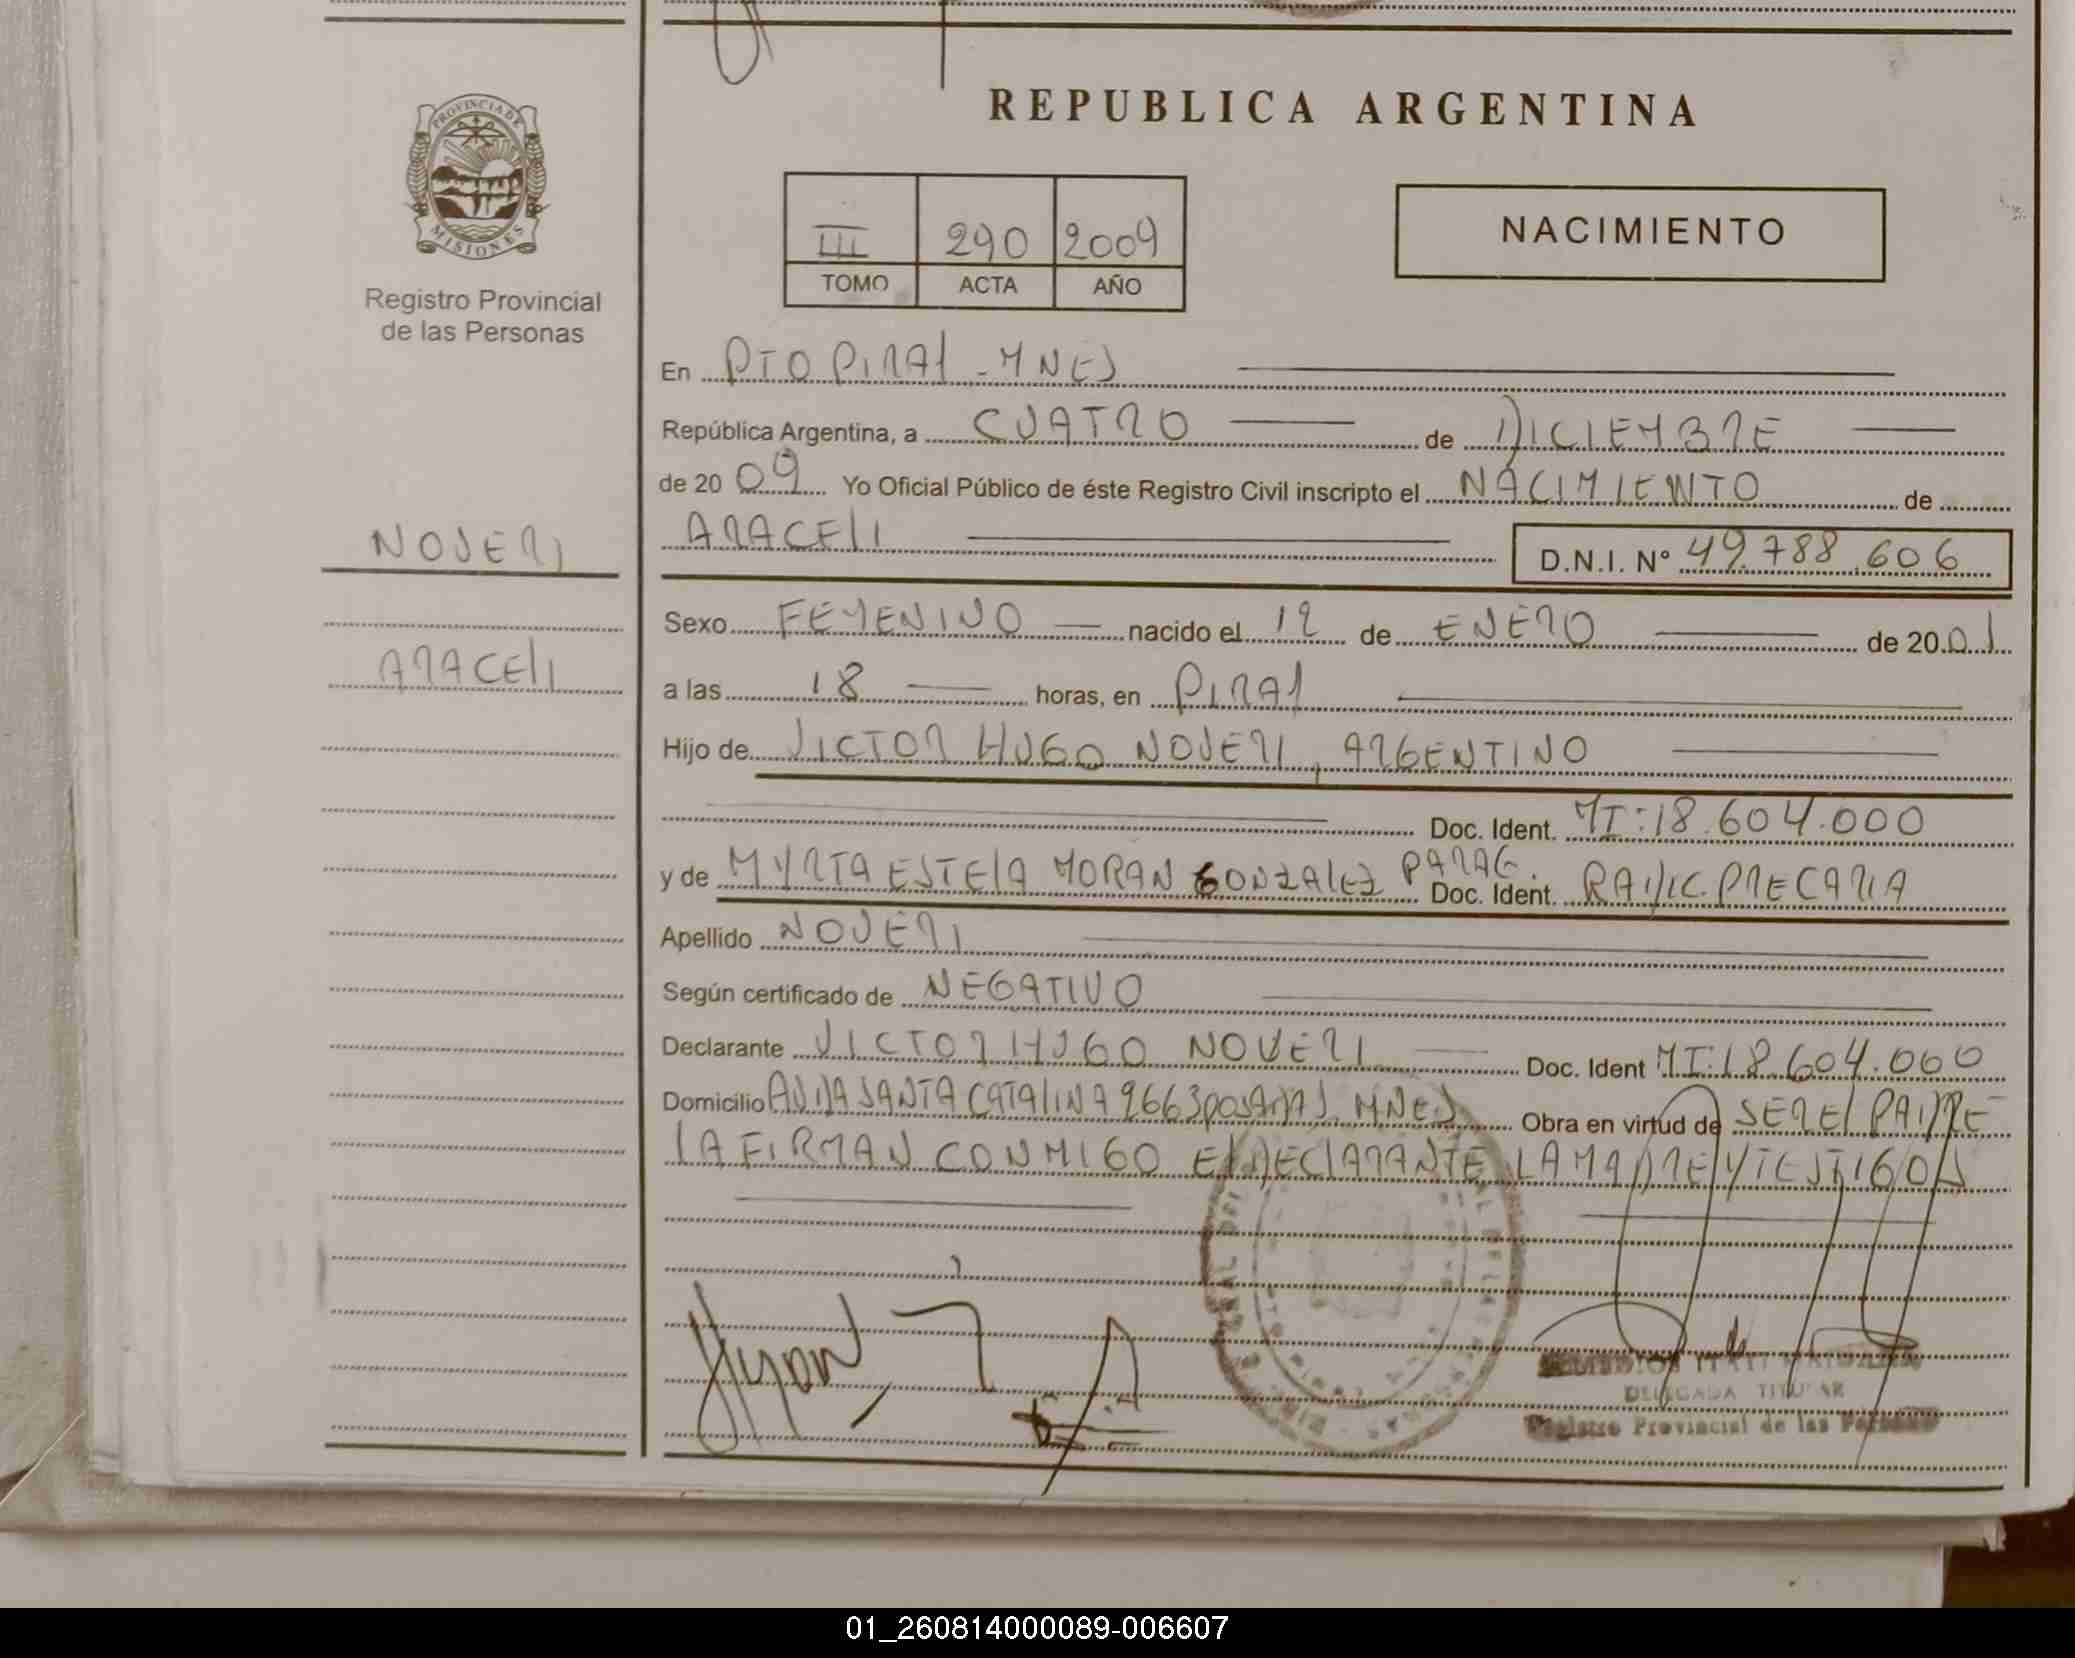 REPUBLICA ARGENTINA
PROVINCIA DE
MISIONES
Registro Provincial
de las Personas
III 290 2009
TOMO ACTA AÑO
NACIMIENTO
En PTO PIRAI - MNES
República Argentina, a CUATRO de DICIEMBRE
de 20 09 Yo Oficial Público de éste Registro Civil inscripto el NACIMIENTO de
NOVERI
ARACELI D.N.I. Nº 49.788.606
Sexo FEMENINO nacido el 12 de ENERO de 20.01
ARACELI
a las 18 horas, en PIRAI
Hijo de VICTOR HUGO NOVERI, ARGENTINO
Doc. Ident. MI:18.604.000
y de MYRTA ESTELA MORAN GONZALEZ PARAG. Doc. Ident. RADIC. PRECARIA
Apellido NOVERI
Según certificado de NEGATIVO
Declarante VICTOR HUGO NOVERI Doc. Ident MI:18.604.000
Domicilio AVDA SANTA CATALINA 2663 POSADAS MNES Obra en virtud de SER EL PADRE
LA FIRMAN CONMIGO EL DECLARANTE LA MADRE Y TESTIGOS
DELEGADA TITULAR
Registro Provincial de las Personas
01_260814000089-006607